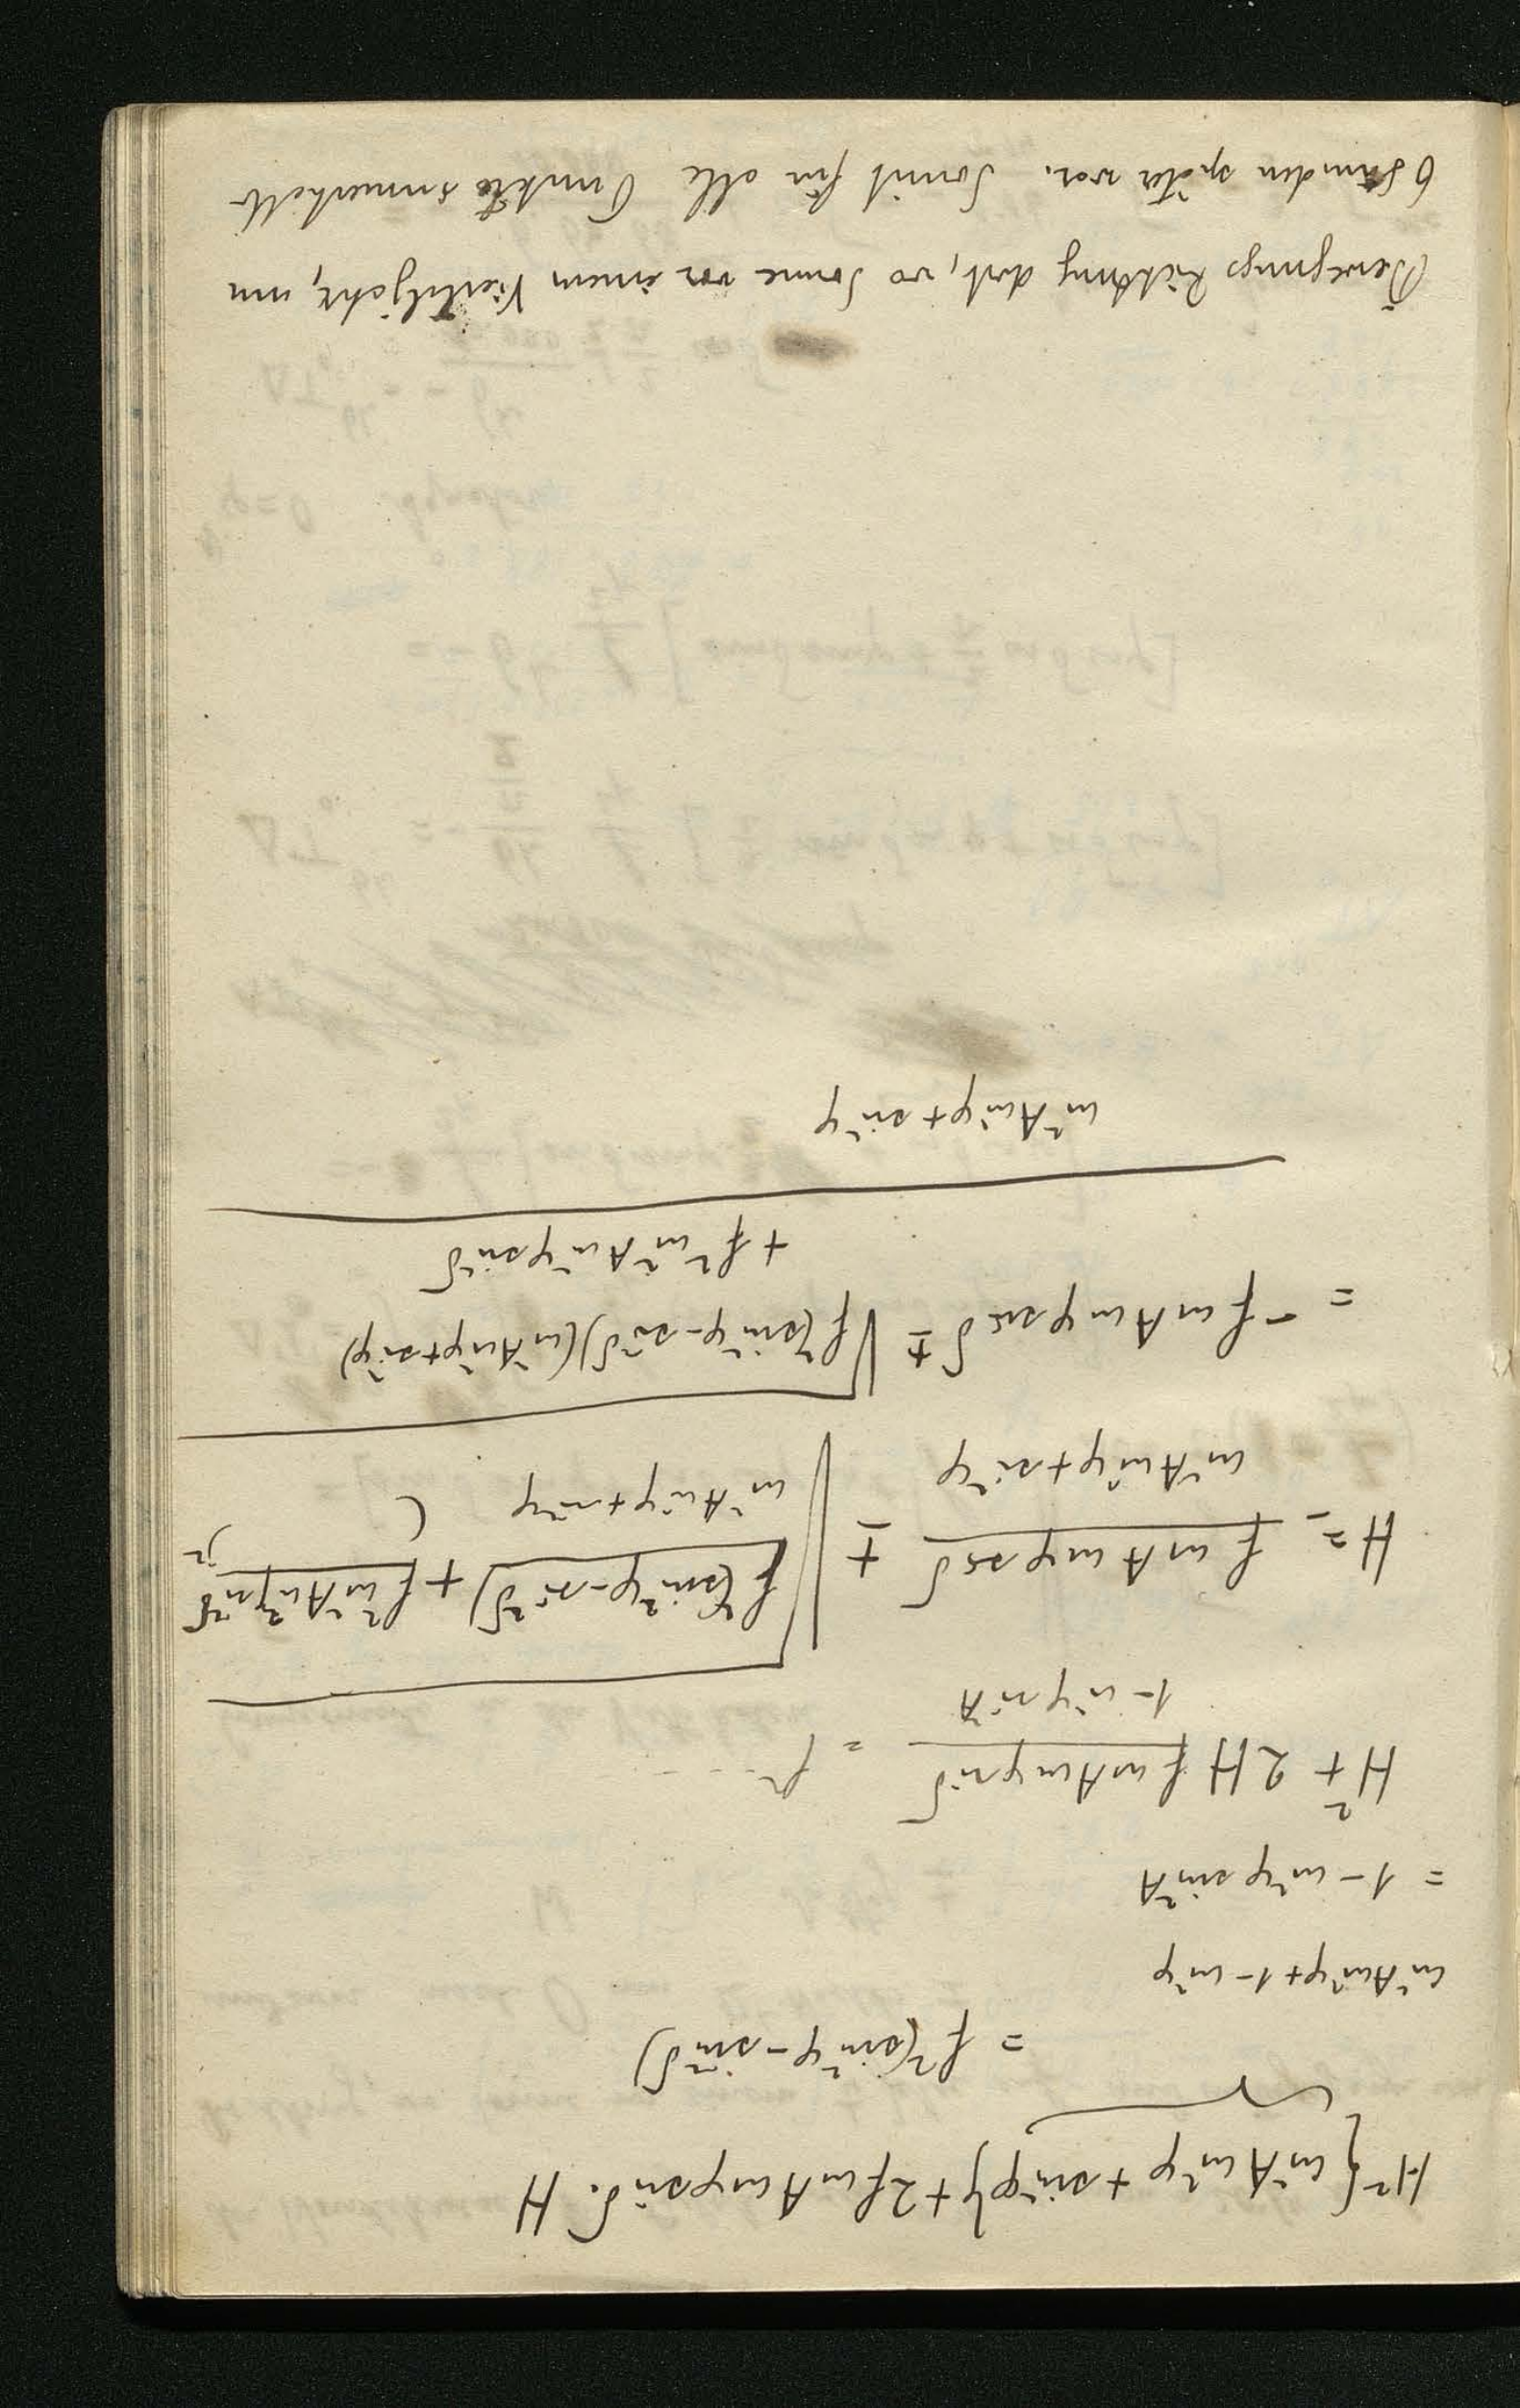 H²{cos²A cos²φ + sin²φ} + 2f cosA cosφ sinδ. H
= f²(sin²φ - sin²δ)
cos²A cos²φ + 1 - cos²φ
= 1 - cos²φ sin²A
H² + 2H f cosA cosφ sinδ / 1 - cos²φ sin²A = f² ....
H = - f cosA cosφ sinδ / cos²A cos²φ + sin²φ ± √ f²(sin²φ - sin²δ) / cos²A cos²φ + sin²φ + f² cos²A cos²φ sin²δ / ( )²
= - f cosA cosφ sinδ ± √ f²(sin²φ - sin²δ)(cos²A cos²φ + sin²φ)
+ f² cos²A cos²φ sin²δ
cos²A cos²φ + sin²φ
Bewegungs Richtung dort, wo Sonne vor einem Vierteljahr, um
6 Stunden später war. Somit für alle Punkte innerhalb